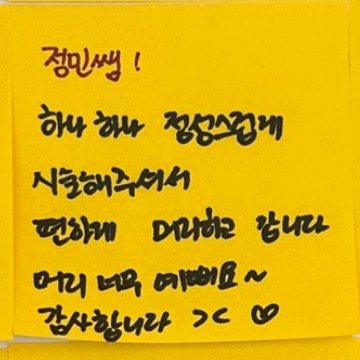 정민쌤!
하나 하나 정성스럽게
시술해주셔서
편하게 머리하고 갑니다
머리 너무 예뻐요~
감사합니다 >< ♡